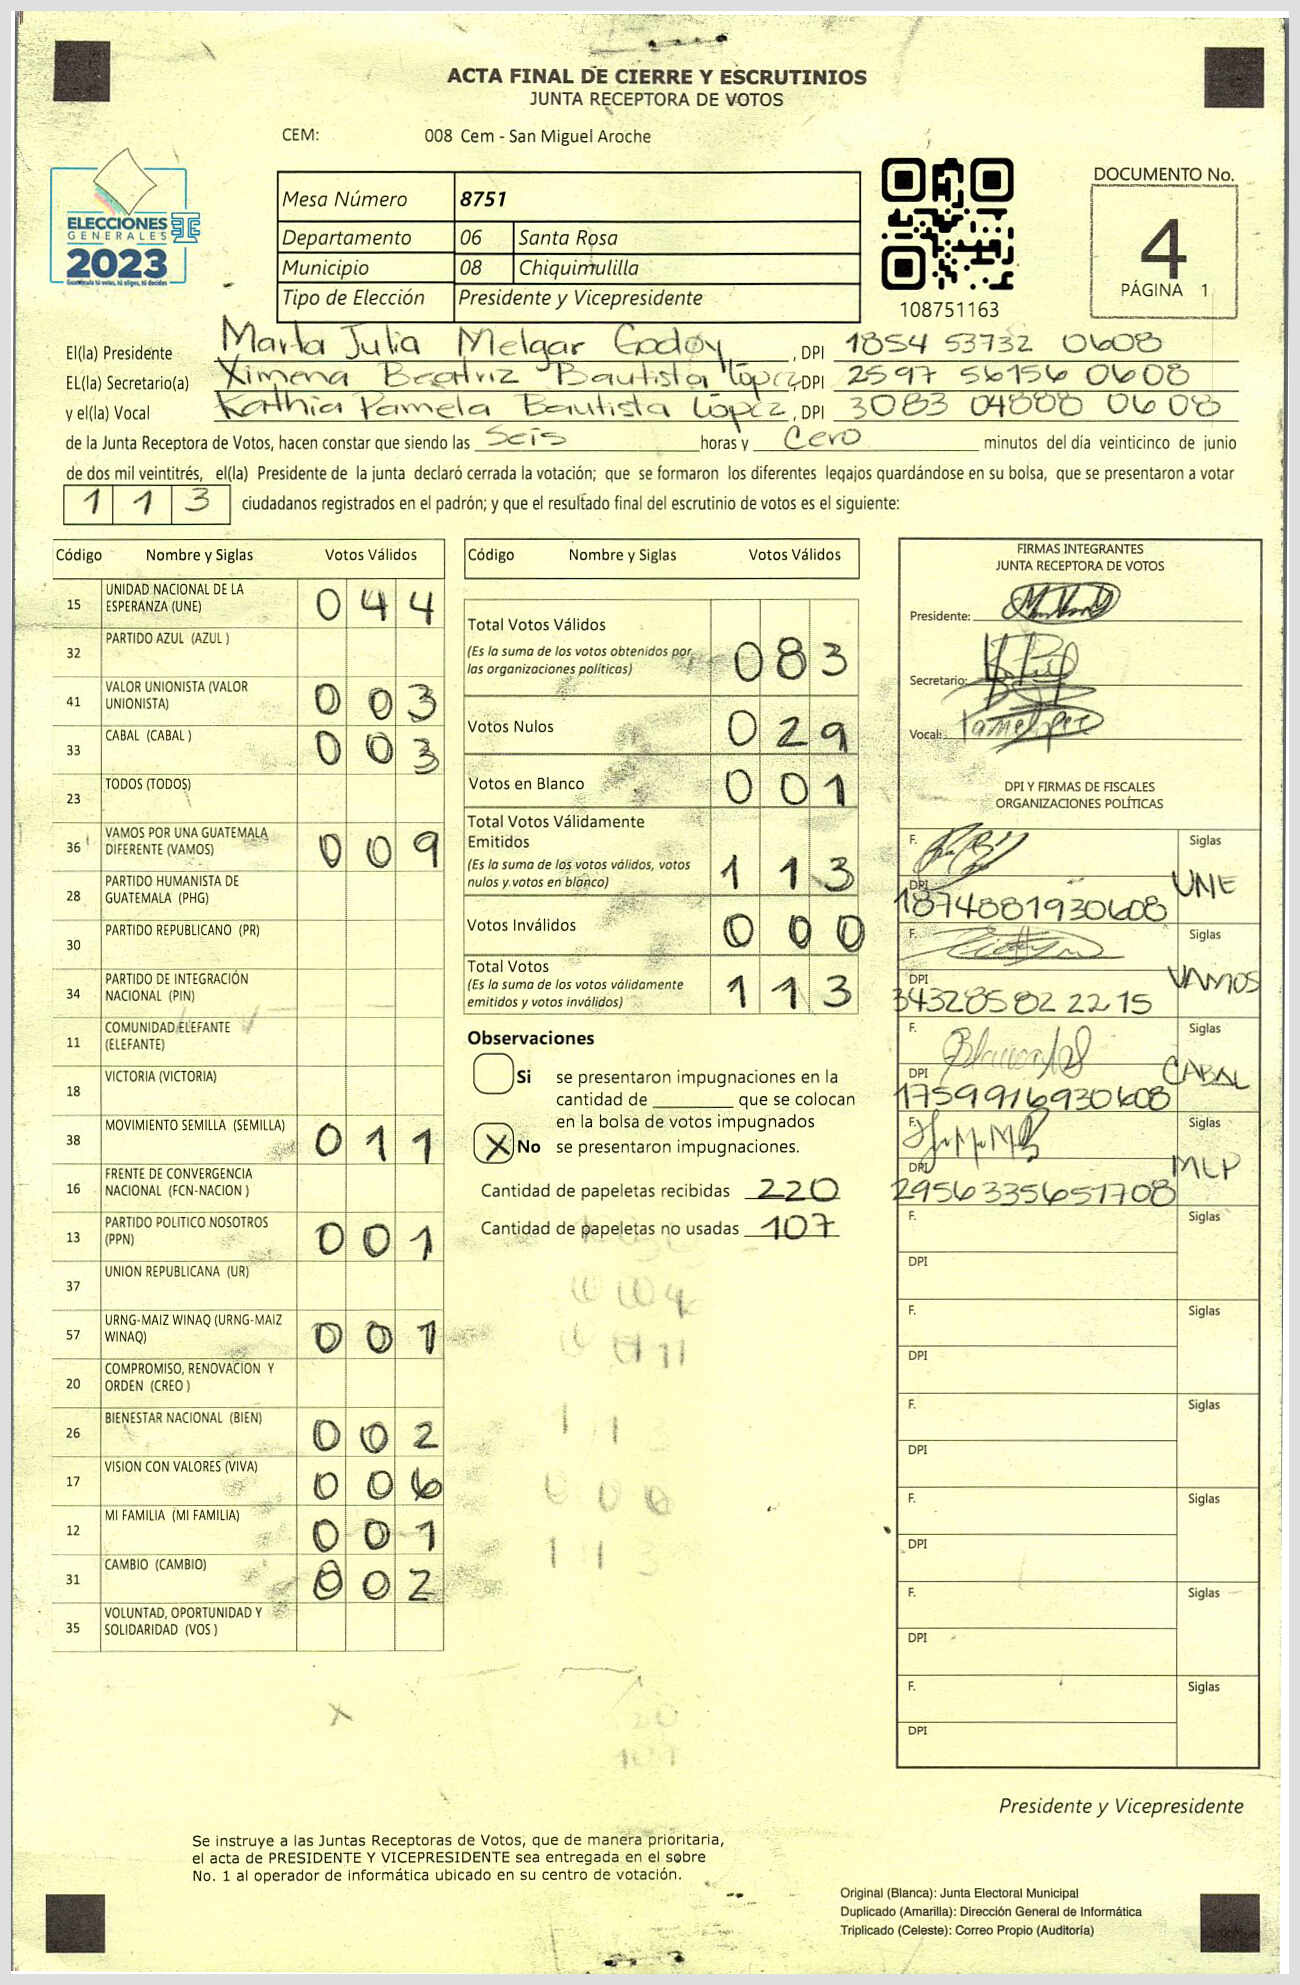 ACTA FINAL DE CIERRE Y ESCRUTINIOS
JUNTA RECEPTORA DE VOTOS
CEM: 008 Cem - San Miguel Aroche
ELECCIONES
GENERALES
2023
Guatemala tú votas, tú eliges, tú decides
Mesa Número 8751
Departamento 06 Santa Rosa
Municipio 08 Chiquimulilla
Tipo de Elección Presidente y Vicepresidente
108751163
DOCUMENTO No.
4
PÁGINA 1
El(la) Presidente Marta Julia Melgar Godoy, DPI 1854 53732 0608
EL(la) Secretario(a) Ximena Beatriz Bautista López, DPI 2597 56156 0608
y el(la) Vocal Karthia Pamela Bautista López, DPI 3083 04888 0608
de la Junta Receptora de Votos, hacen constar que siendo las Seis horas y Cero minutos del día veinticinco de junio
de dos mil veintitrés, el(la) Presidente de la junta declaró cerrada la votación; que se formaron los diferentes legajos quardándose en su bolsa, que se presentaron a votar
113 ciudadanos registrados en el padrón; y que el resultado final del escrutinio de votos es el siguiente:
Código Nombre y Siglas Votos Válidos
15 UNIDAD NACIONAL DE LA ESPERANZA (UNE) 044
32 PARTIDO AZUL (AZUL )
41 VALOR UNIONISTA (VALOR UNIONISTA) 003
33 CABAL (CABAL ) 003
23 TODOS (TODOS)
36 VAMOS POR UNA GUATEMALA DIFERENTE (VAMOS) 009
28 PARTIDO HUMANISTA DE GUATEMALA (PHG)
30 PARTIDO REPUBLICANO (PR)
34 PARTIDO DE INTEGRACIÓN NACIONAL (PIN)
11 COMUNIDAD ELEFANTE (ELEFANTE)
18 VICTORIA (VICTORIA)
38 MOVIMIENTO SEMILLA (SEMILLA) 011
16 FRENTE DE CONVERGENCIA NACIONAL (FCN-NACION )
13 PARTIDO POLITICO NOSOTROS (PPN) 001
37 UNION REPUBLICANA (UR)
57 URNG-MAIZ WINAQ (URNG-MAIZ WINAQ) 001
20 COMPROMISO, RENOVACION Y ORDEN (CREO )
26 BIENESTAR NACIONAL (BIEN) 002
17 VISION CON VALORES (VIVA) 006
12 MI FAMILIA (MI FAMILIA) 001
31 CAMBIO (CAMBIO) 002
35 VOLUNTAD, OPORTUNIDAD Y SOLIDARIDAD (VOS )
Código Nombre y Siglas Votos Válidos
Total Votos Válidos 083
(Es la suma de los votos obtenidos por
las organizaciones políticas)
Votos Nulos 029
Votos en Blanco 001
Total Votos Válidamente
Emitidos 113
(Es la suma de los votos válidos, votos
nulos y votos en blanco)
Votos Inválidos 000
Total Votos 113
(Es la suma de los votos válidamente
emitidos y votos inválidos)
Observaciones
Si se presentaron impugnaciones en la
cantidad de ________ que se colocan
en la bolsa de votos impugnados
X No se presentaron impugnaciones.
Cantidad de papeletas recibidas 220
Cantidad de papeletas no usadas 107
FIRMAS INTEGRANTES
JUNTA RECEPTORA DE VOTOS
Presidente:
Secretario:
Vocal:
DPI Y FIRMAS DE FISCALES
ORGANIZACIONES POLÍTICAS
F. Siglas UNE
DPI 1874881930608
F. Siglas VAMOS
DPI 343285822215
F. Siglas CABAL
DPI 1759916930608
F. Siglas MLP
DPI 2956335651708
F. Siglas
DPI
F. Siglas
DPI
F. Siglas
DPI
F. Siglas
DPI
F. Siglas
DPI
F. Siglas
DPI
Presidente y Vicepresidente
Se instruye a las Juntas Receptoras de Votos, que de manera prioritaria,
el acta de PRESIDENTE Y VICEPRESIDENTE sea entregada en el sobre
No. 1 al operador de informática ubicado en su centro de votación.
Original (Blanca): Junta Electoral Municipal
Duplicado (Amarilla): Dirección General de Informática
Triplicado (Celeste): Correo Propio (Auditoría)